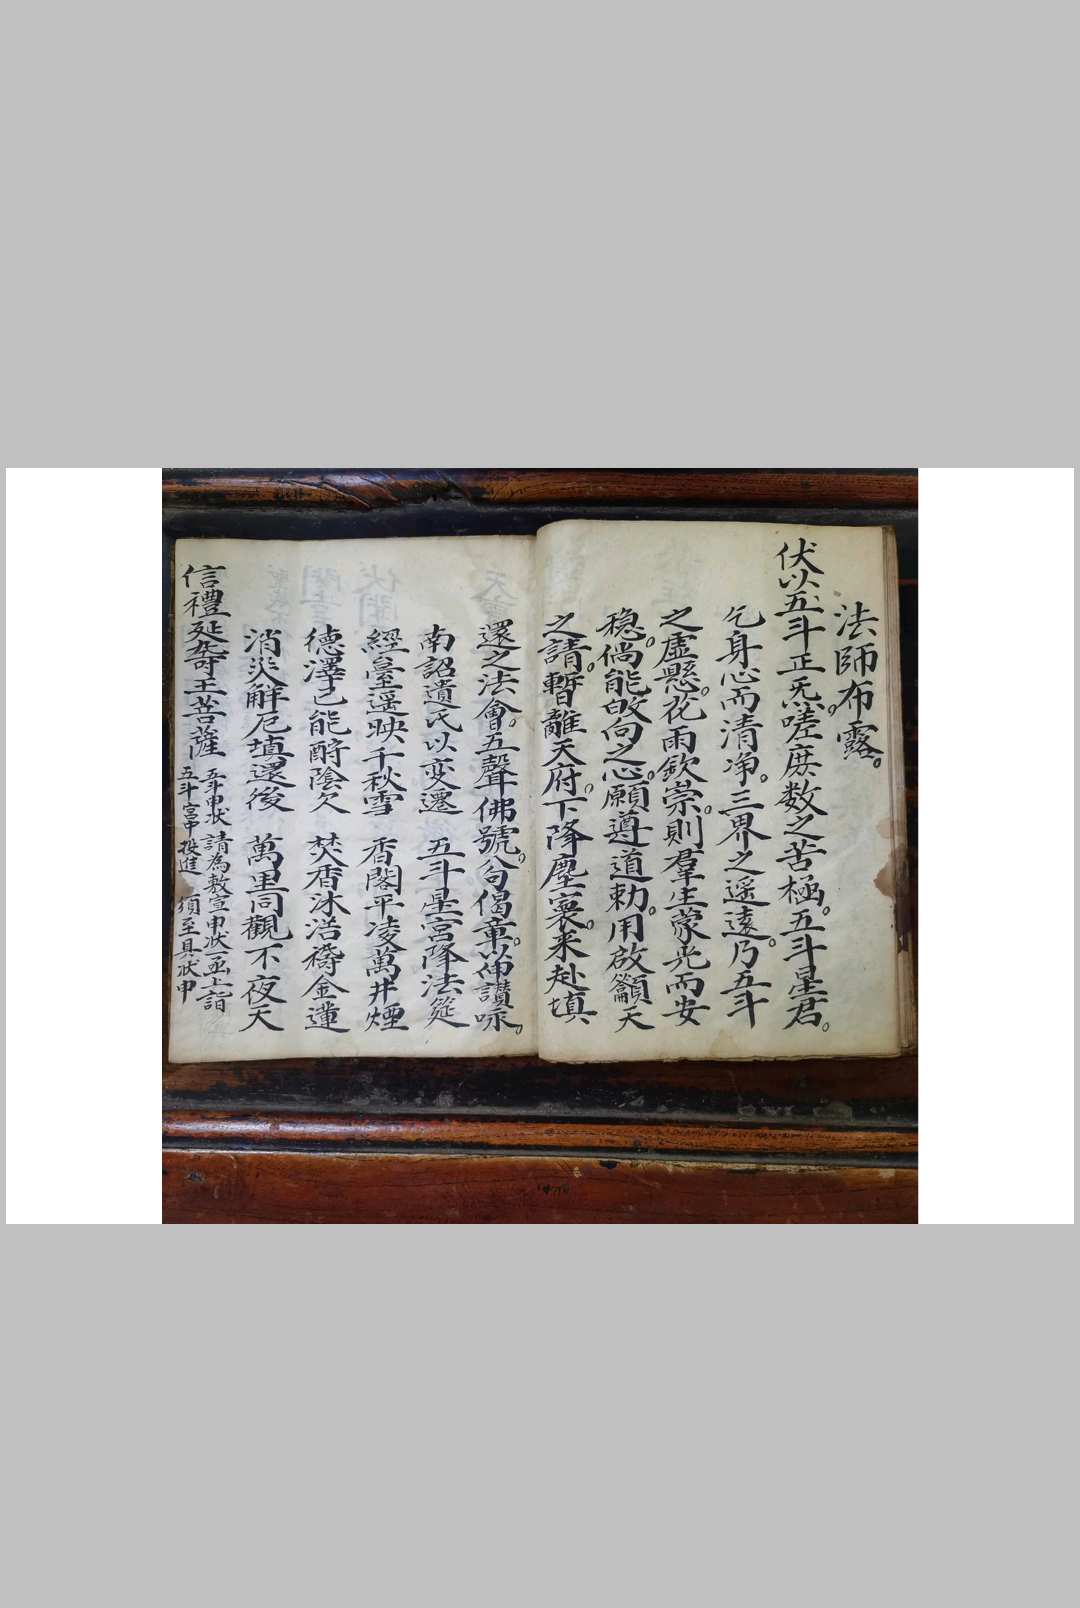 法師布露。
伏以五斗正炁。嗟庶数之苦極。五斗星君。
乞身心而清净。三界之遥遠。乃五斗
之虛懸。花雨欽崇。則羣生蒙光而安
穏。倘能啟向之心。願遵道勅。用啟籲天
之請。暫離天府。下降塵寰。来赴填
還之法會。五聲佛號。句偈章。以伸讃咏。
南詔遺氏以変遷 五斗星宮降法筵
經臺遥映千秋雪 香閣平凌萬井煙
德澤已能酧陰欠 焚香沐浴禱金蓮
消災解厄填還後 萬里同觀不夜天
信禮延夀王菩薩 五斗申状 請為敷宣申状函上詣
五斗宮中 投進 須至具状申